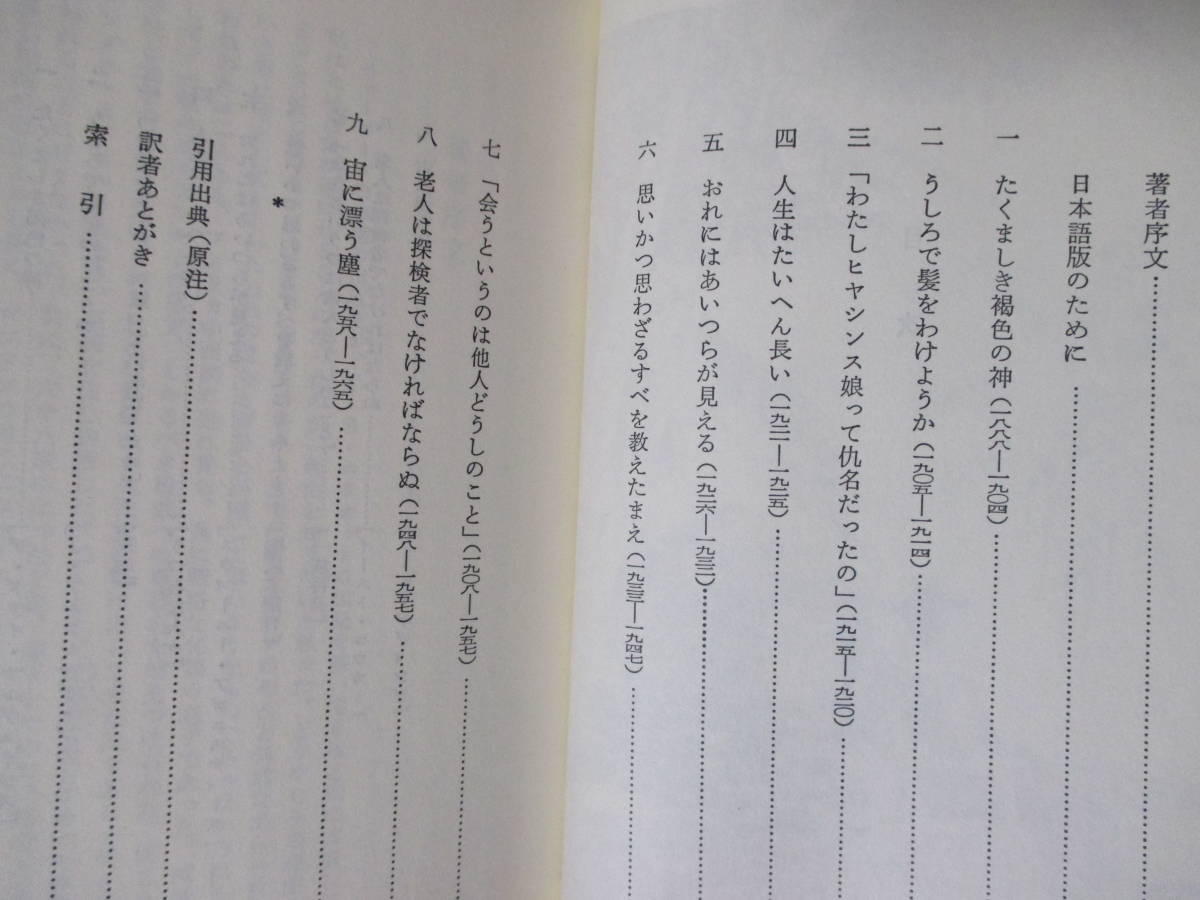 著者序文
日本語版のために
一 たくましき褐色の神（一八八八―一九〇四）
二 うしろで髪をわけようか（一九〇五―一九一四）
三 「わたしヒヤシンス娘って仇名だったの」（一九一五―一九二〇）
四 人生はたいへん長い（一九二一―一九二五）
五 おれにはあいつらが見える（一九二六―一九三二）
六 思いかつ思わざるすべを教えたまえ（一九三三―一九四七）
七 「会うというのは他人どうしのこと」（一九〇八―一九五七）
八 老人は探検者でなければならぬ（一九四八―一九五七）
九 宙に漂う塵（一九五八―一九六五）
*
引用出典（原注）
訳者あとがき
索引